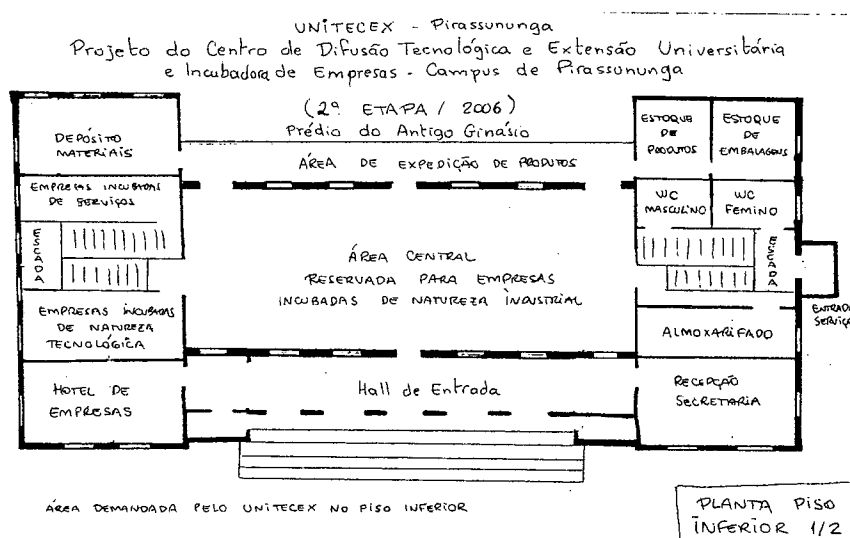 UNITECEX - Pirassununga
Projeto do Centro de Difusão Tecnológica e Extensão Universitária
e Incubadora de Empresas - Campus de Pirassununga
(2ª ETAPA / 2006)
Prédio do Antigo Ginásio
DEPÓSITO
MATERIAIS
ÁREA DE EXPEDIÇÃO DE PRODUTOS
ESTOQUE
DE
PRODUTOS
ESTOQUE
DE
EMBALAGENS
EMPRESAS INCUBADAS
DE SERVIÇOS
WC
MASCULINO
WC
FEMINO
ESCADA
ÁREA CENTRAL
RESERVADA PARA EMPRESAS
INCUBADAS DE NATUREZA INDUSTRIAL
ESCADA
ENTRADA
SERVIÇO
EMPRESAS INCUBADAS
DE NATUREZA
TECNOLÓGICA
ALMOXARIFADO
HOTEL DE
EMPRESAS
Hall de Entrada
RECEPÇÃO
SECRETARIA
ÁREA DEMANDADA PELO UNITECEX NO PISO INFERIOR
PLANTA PISO
INFERIOR 1/2